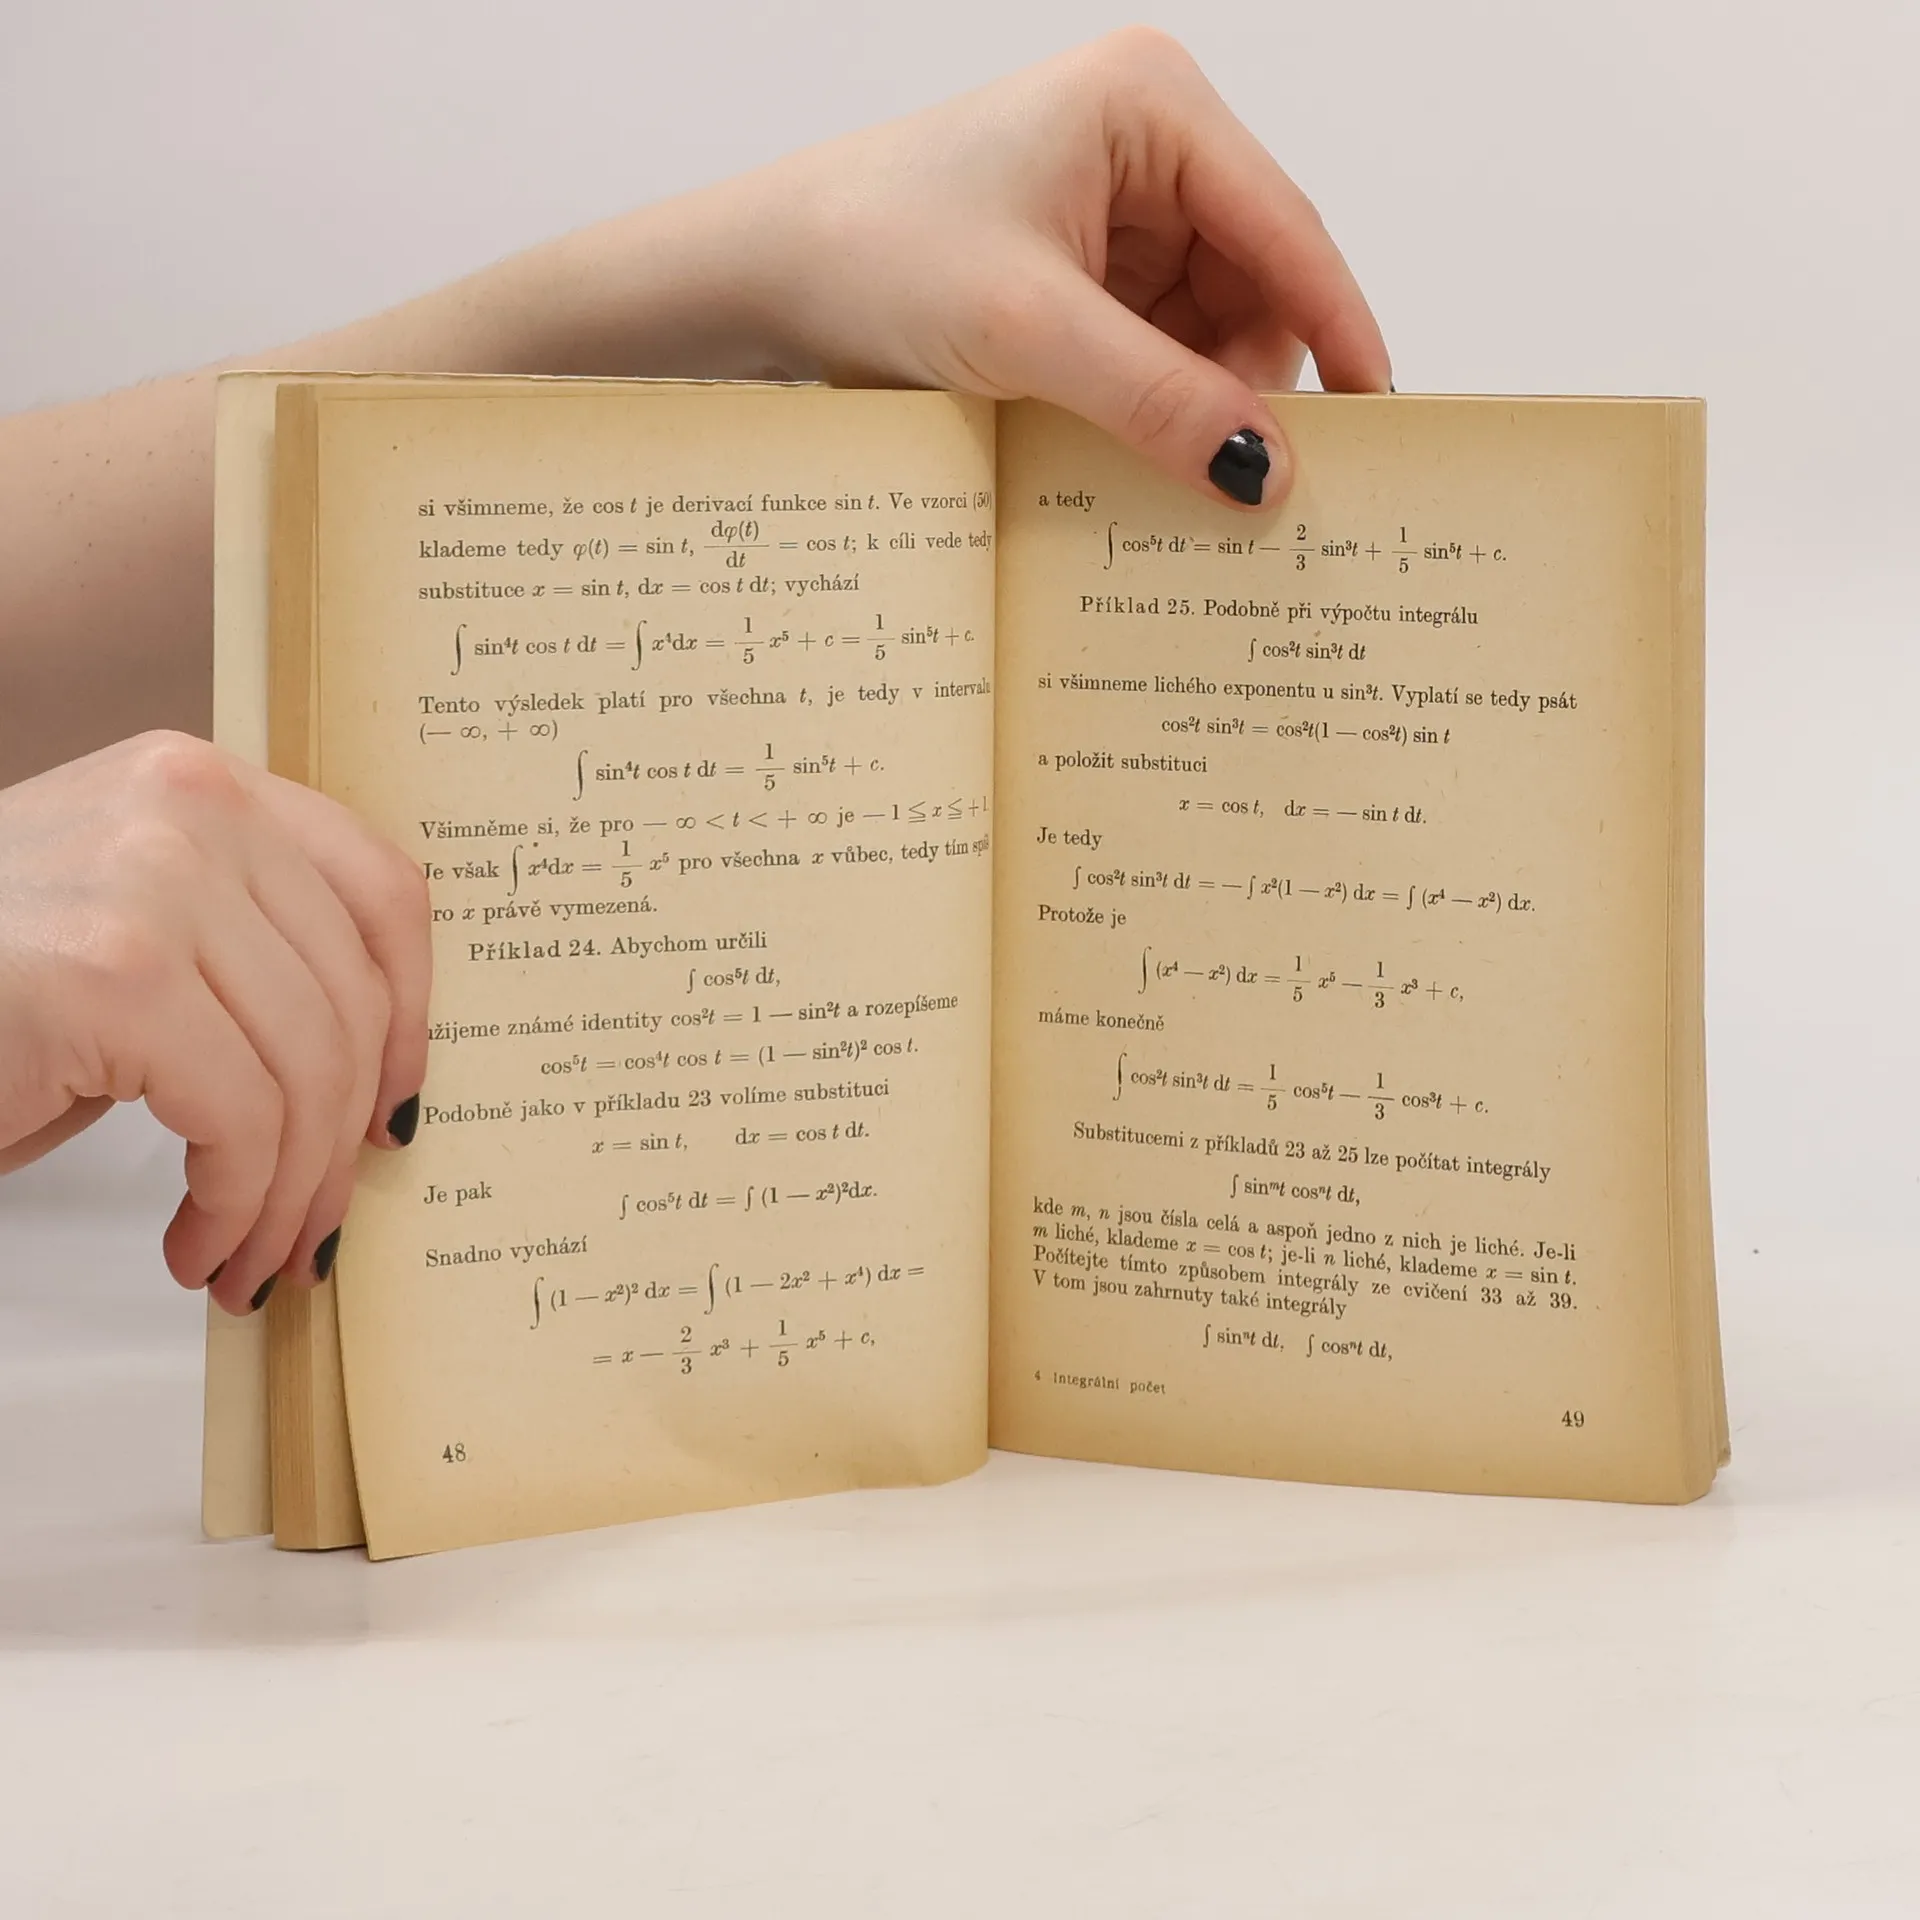 si všimneme, že cos t je derivací funkce sin t. Ve vzorci (50)
klademe tedy φ(t) = sin t, dφ(t)/dt = cos t; k cíli vede tedy
substituce x = sin t, dx = cos t dt; vychází
∫ sin⁴t cos t dt = ∫ x⁴dx = 1/5 x⁵ + c = 1/5 sin⁵t + c.
Tento výsledek platí pro všechna t, je tedy v intervalu
(— ∞, + ∞)
∫ sin⁴t cos t dt = 1/5 sin⁵t + c.
Všimněme si, že pro — ∞ < t < + ∞ je — 1 ≦ x ≦ +1
Je však ∫ x⁴dx = 1/5 x⁵ pro všechna x vůbec, tedy tím spíš
ro x právě vymezená.
Příklad 24. Abychom určili
∫ cos⁵t dt,
užijeme známé identity cos²t = 1 — sin²t a rozepíšeme
cos⁵t = cos⁴t cos t = (1 — sin²t)² cos t.
Podobně jako v příkladu 23 volíme substituci
x = sin t, dx = cos t dt.
Je pak
∫ cos⁵t dt = ∫ (1 — x²)²dx.
Snadno vychází
∫ (1 — x²)² dx = ∫ (1 — 2x² + x⁴) dx =
= x — 2/3 x³ + 1/5 x⁵ + c,
48
a tedy
∫ cos⁵t dt = sin t — 2/3 sin³t + 1/5 sin⁵t + c.
Příklad 25. Podobně při výpočtu integrálu
∫ cos²t sin³t dt
si všimneme lichého exponentu u sin³t. Vyplatí se tedy psát
cos²t sin³t = cos²t(1 — cos²t) sin t
a položit substituci
x = cos t, dx = — sin t dt.
Je tedy
∫ cos²t sin³t dt = — ∫ x²(1 — x²) dx = ∫ (x⁴ — x²) dx.
Protože je
∫ (x⁴ — x²) dx = 1/5 x⁵ — 1/3 x³ + c,
máme konečně
∫ cos²t sin³t dt = 1/5 cos⁵t — 1/3 cos³t + c.
Substitucemi z příkladů 23 až 25 lze počítat integrály
∫ sinᵐt cosⁿt dt,
kde m, n jsou čísla celá a aspoň jedno z nich je liché. Je-li
m liché, klademe x = cos t; je-li n liché, klademe x = sin t.
Počítejte tímto způsobem integrály ze cvičení 33 až 39.
V tom jsou zahrnuty také integrály
∫ sinⁿt dt, ∫ cosⁿt dt,
4 Integrální počet
49